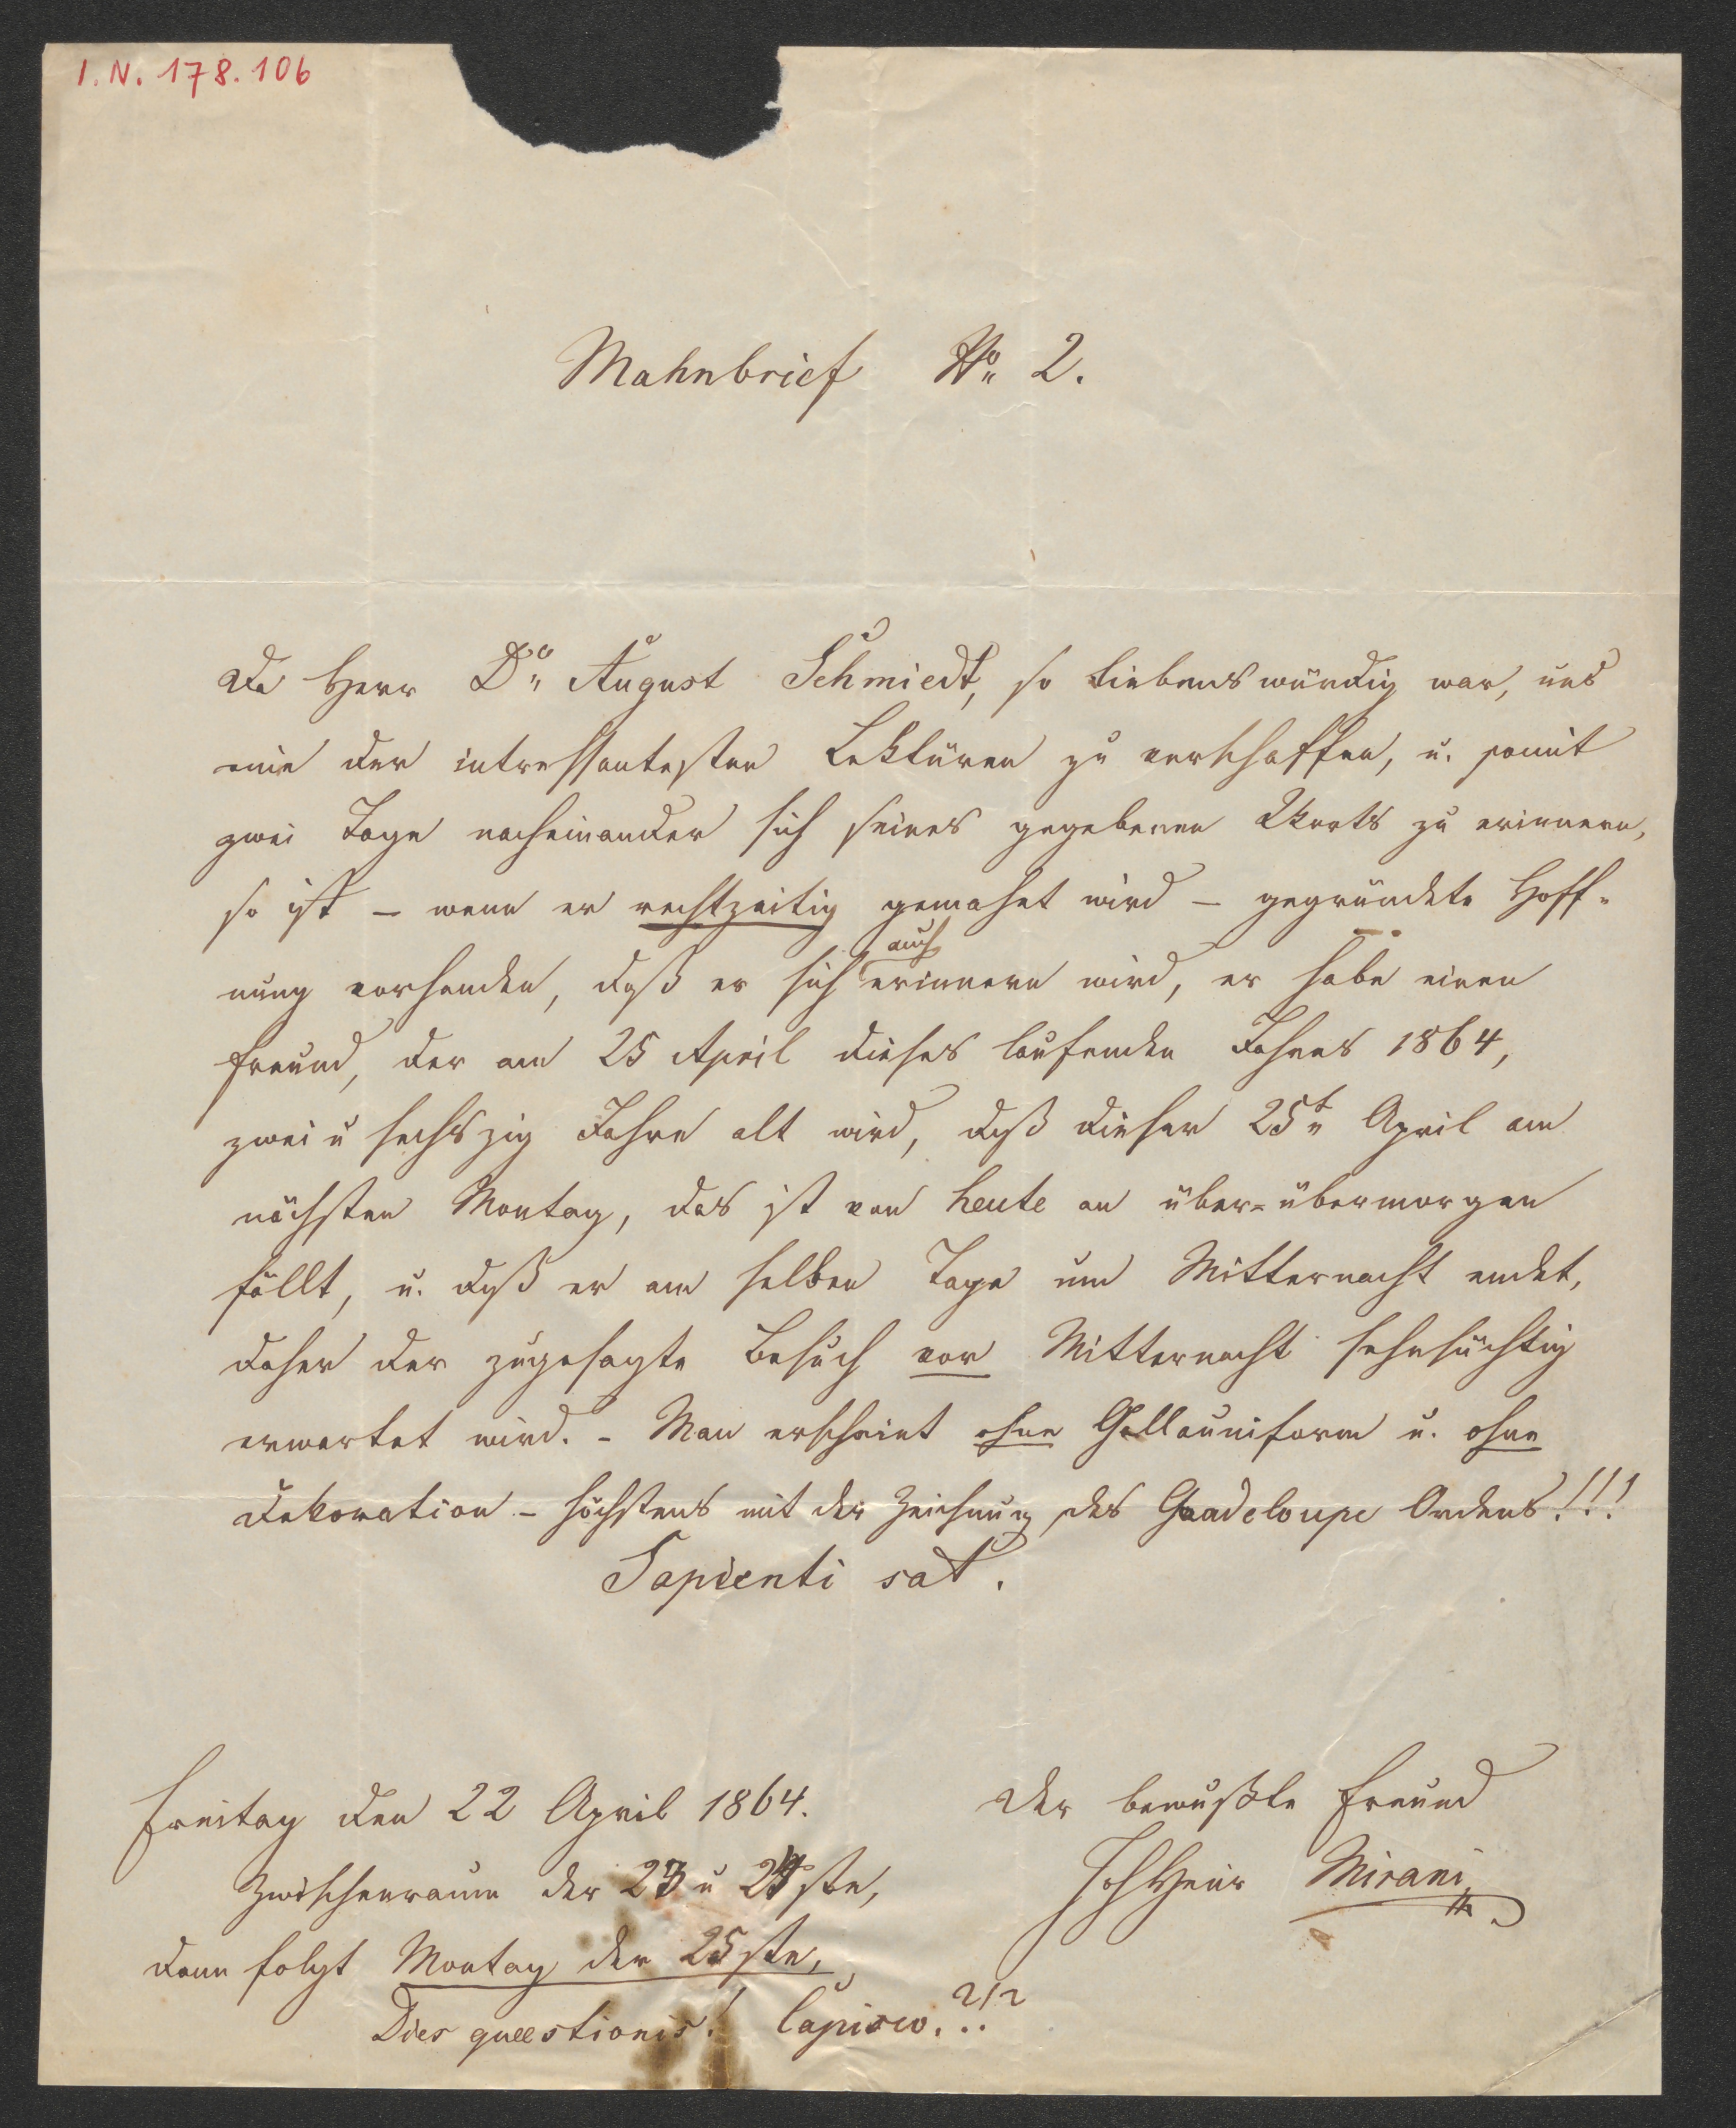 I. N. 178.106
Mahnbrief No 2.
Da Herr Dr August Schmiedt, so liebenswürdig war, uns
eine der intressantesten Lektüren zu verschaffen, u. somit
zwei Tage nacheinander sich seines gegebenen Worts zu erinnern,
so ist – wenn er rechtzeitig gemahnt wird – gegründete Hoff-
nung vorhanden, daß er sich auch erinnern wird, er habe einen
Freund, der am 25 April dieses laufenden Jahres 1864,
zwei u sechszig Jahre alt wird, daß dieser 25t April am
nächsten Montag, das ist von heute an über-übermorgen
fällt, u. daß er am selben Tage um Mitternacht endet,
daher der zugesagte Besuch vor Mitternacht sehnsüchtig
erwartet wird. – Man erscheint ohne Gallauniform u. ohne
Dekoration – höchstens mit der Zeichnung des Guadeloupe Ordens!!!
Sapienti sat.
Freitag den 22 April 1864.
Der bewußte Freund
Zwischenraum der 23 u 24ste,
Joh Heinr Mirani
dann folgt Montag der 25ste,
Dies quaestionis! Capisco.?!?